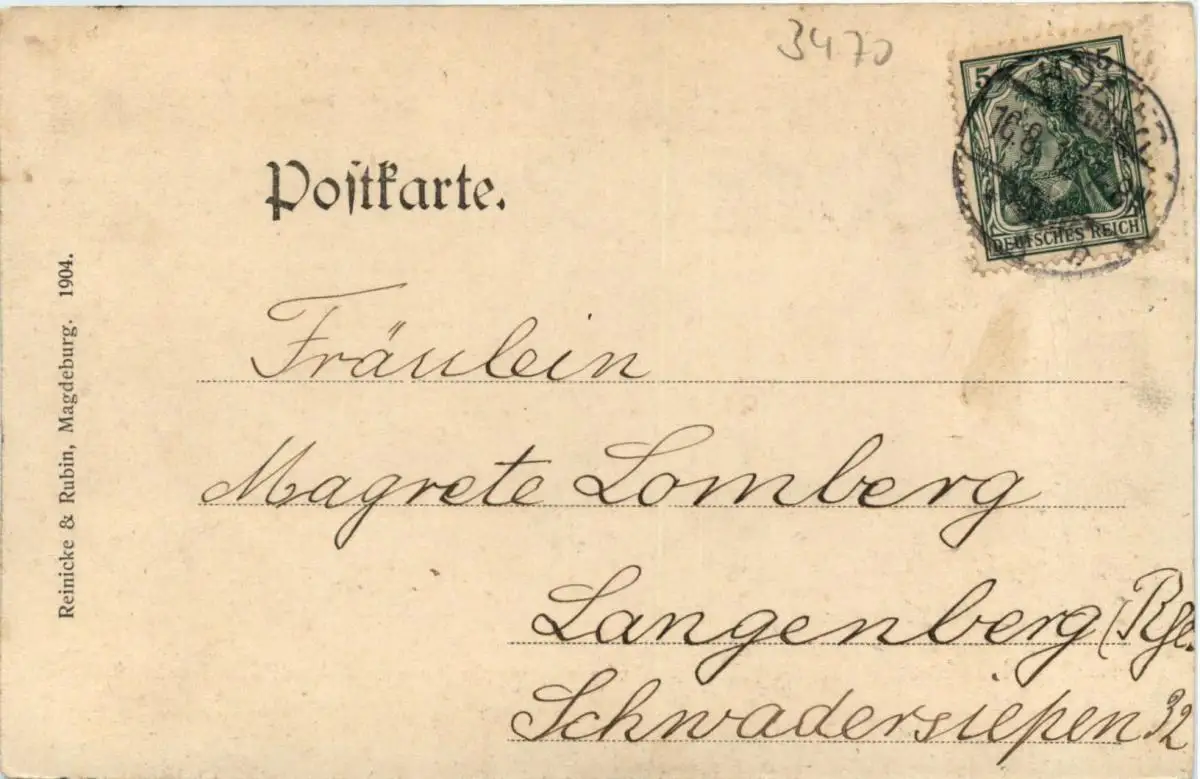 3470
5 5
16.8
DEUTSCHES REICH
Postkarte.
Reinicke & Rubin, Magdeburg. 1904.
Fräulein
Magrete Lomberg
Langenberg (Rhe.
Schwadersiepen 32